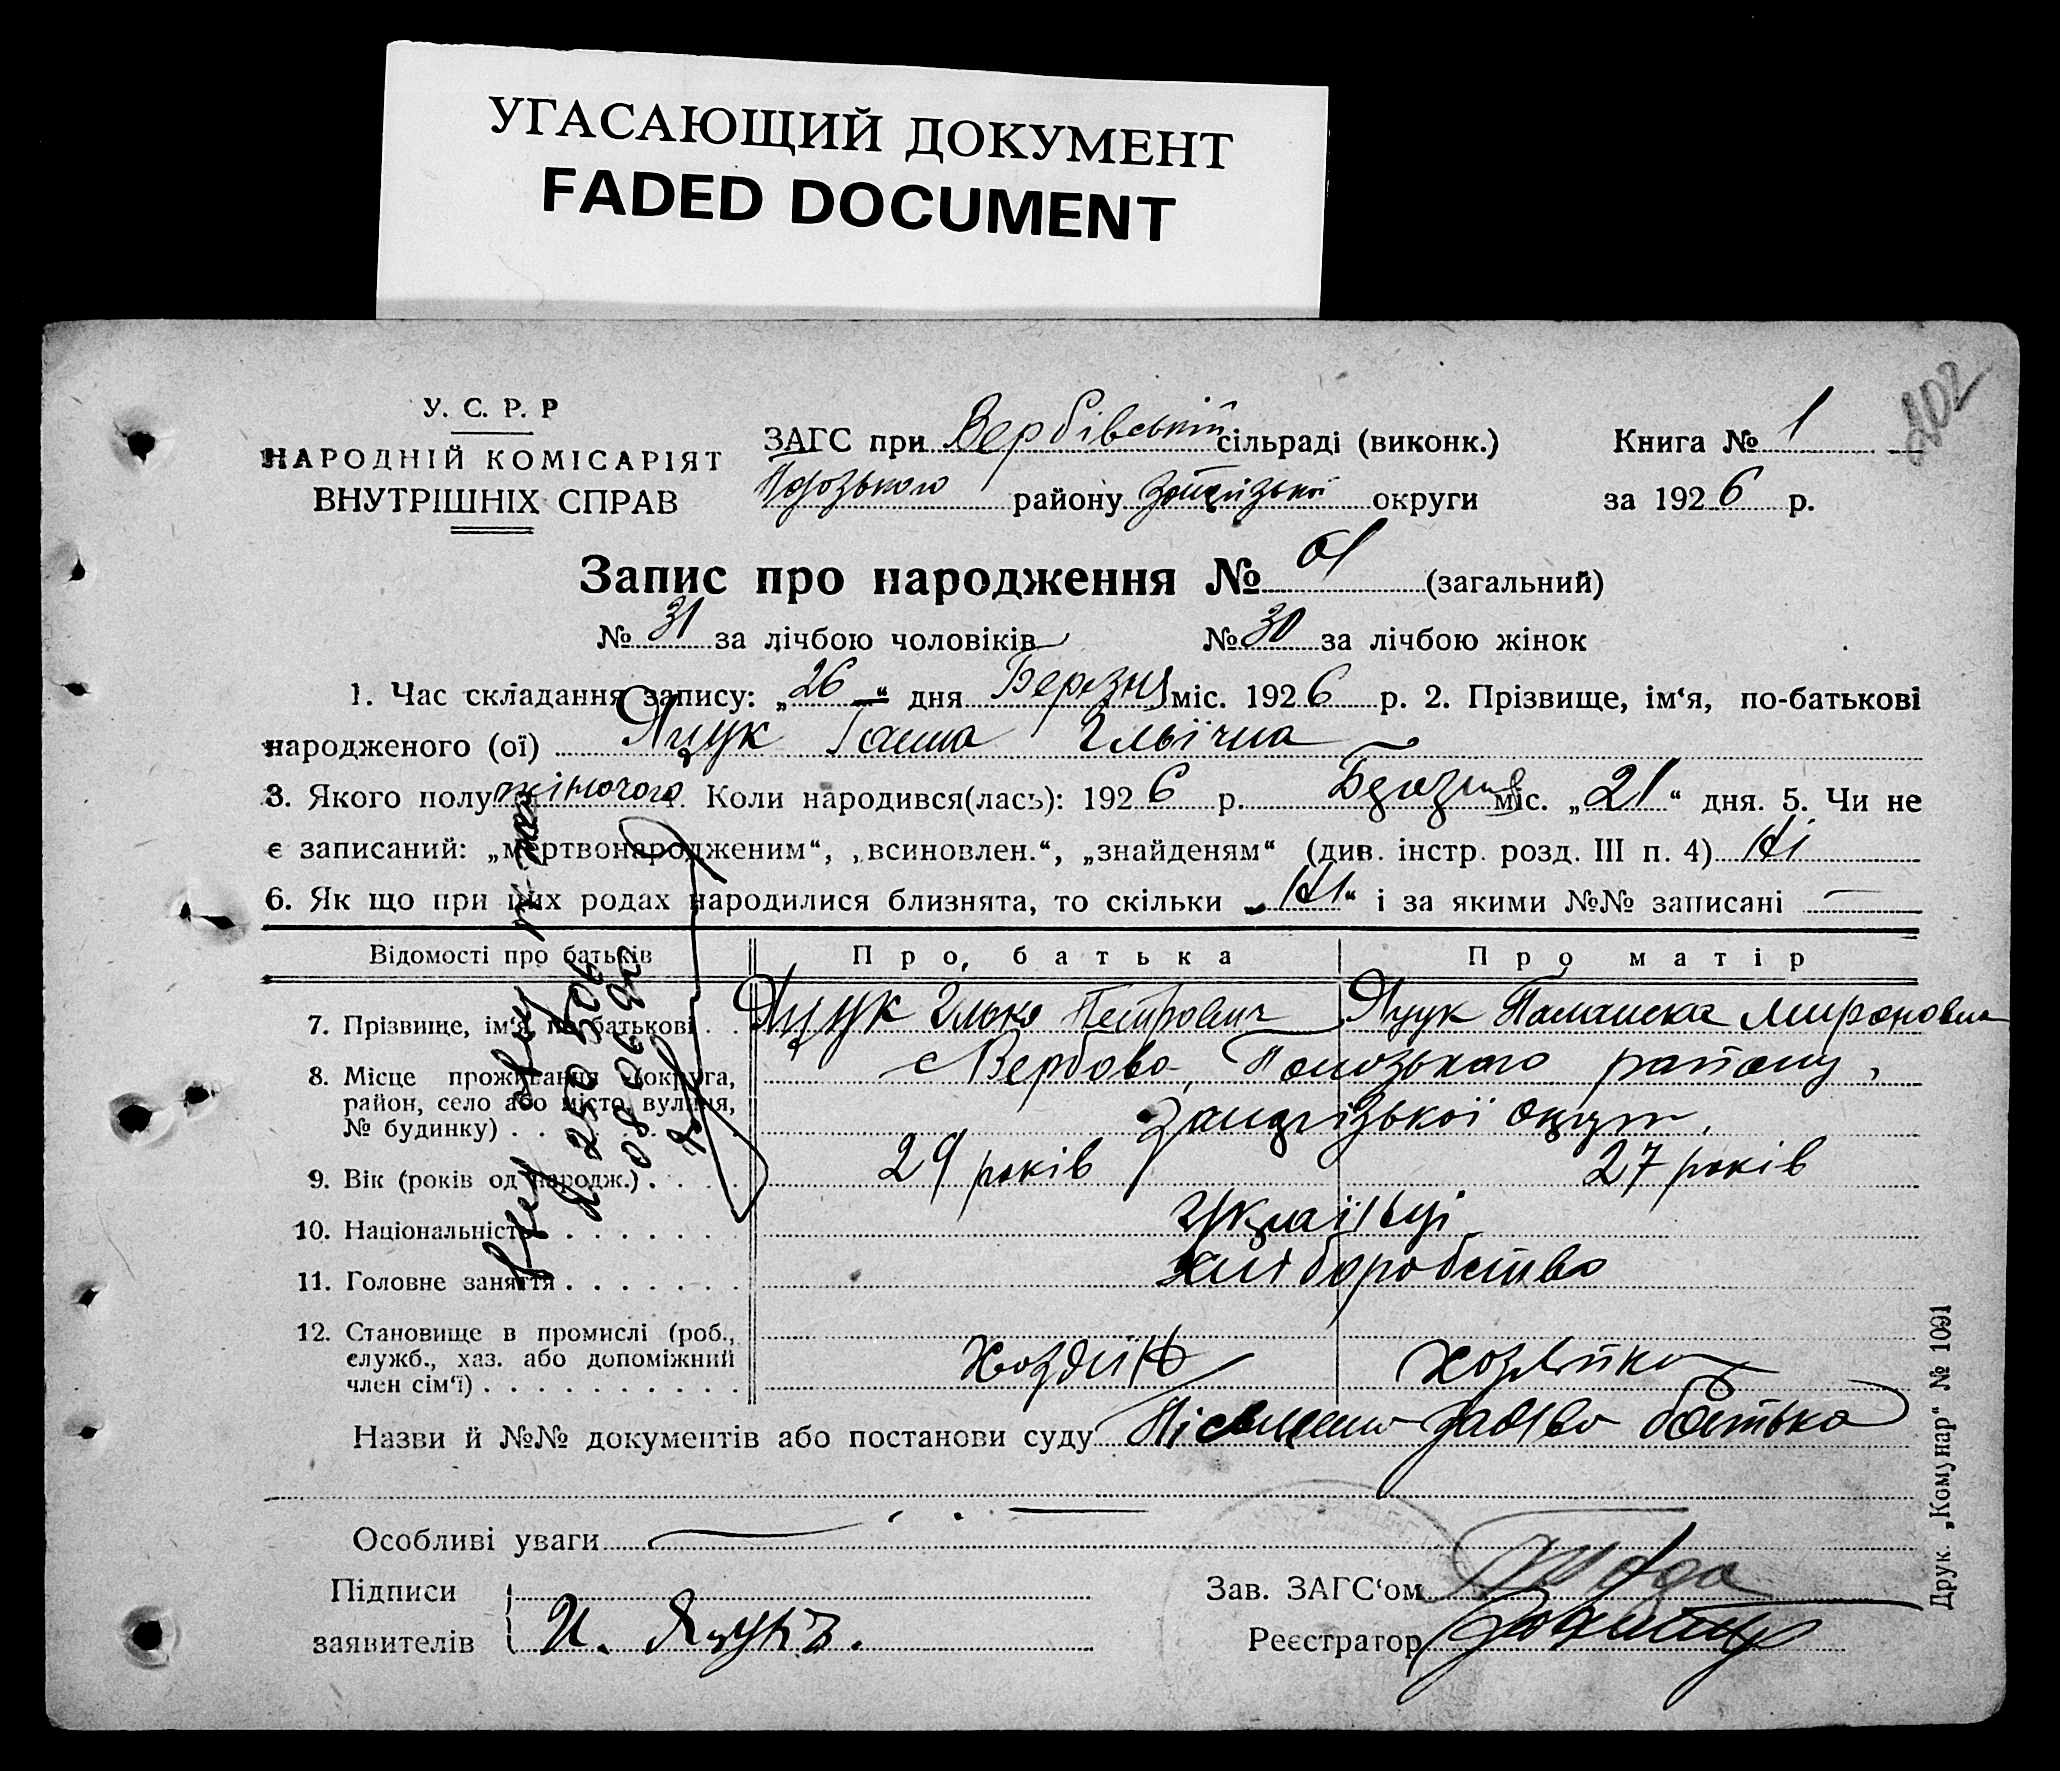 УГАСАЮЩИЙ ДОКУМЕНТ
FADED DOCUMENT
402
У. С. Р. Р
НАРОДНІЙ КОМІСАРІЯТ
ВНУТРІШНІХ СПРАВ
ЗАГС при Вербівській сільраді (виконк.) Книга № 1
району округи за 1926 р.
Запис про народження № 61 (загальний)
№ 31 за лічбою чоловіків № 30 за лічбою жінок
1. Час складання запису: „26“ дня Березня міс. 1926 р. 2. Прізвище, ім‘я, по-батькові
народженого (ої) Яцук Ганна Ільїчна
3. Якого полу жіночого Коли народився(лась): 1926 р. Березня міс. „21“ дня. 5. Чи не
є записаний: „мертвонародженим“, „всиновлен.“, „знайденям“ (див. інстр. розд. III п. 4) Ні
6. Як що при цих родах народилися близнята, то скільки „Ні“ і за якими №№ записані —
Відомості про батьків Про батька Про матір
7. Прізвище, ім‘я, по батькові . . Яцук Ілько Петрович Яцук Мироновна
8. Місце проживання (округа, с Вербово, Пологського району,
район, село або місто, вулиця,
№ будинку) . . . округи,
9. Вік (років од народж.) . . . . 29 років 27 років
10. Національність . . . . . . . Українці
11. Головне заняття . . . . . . . хліборобство
12. Становище в промислі (роб.,
служб., хаз. або допоміжний Хозяїн хозяйка
член сім‘ї) . . . . . . . . . .
Назви й №№ документів або постанови суду Письмено заява батька
Особливі уваги
Підписи Зав. ЗАГС‘ом
заявителів И. Яцукъ. Реєстратор
Друк. „Комунар“ № 1091